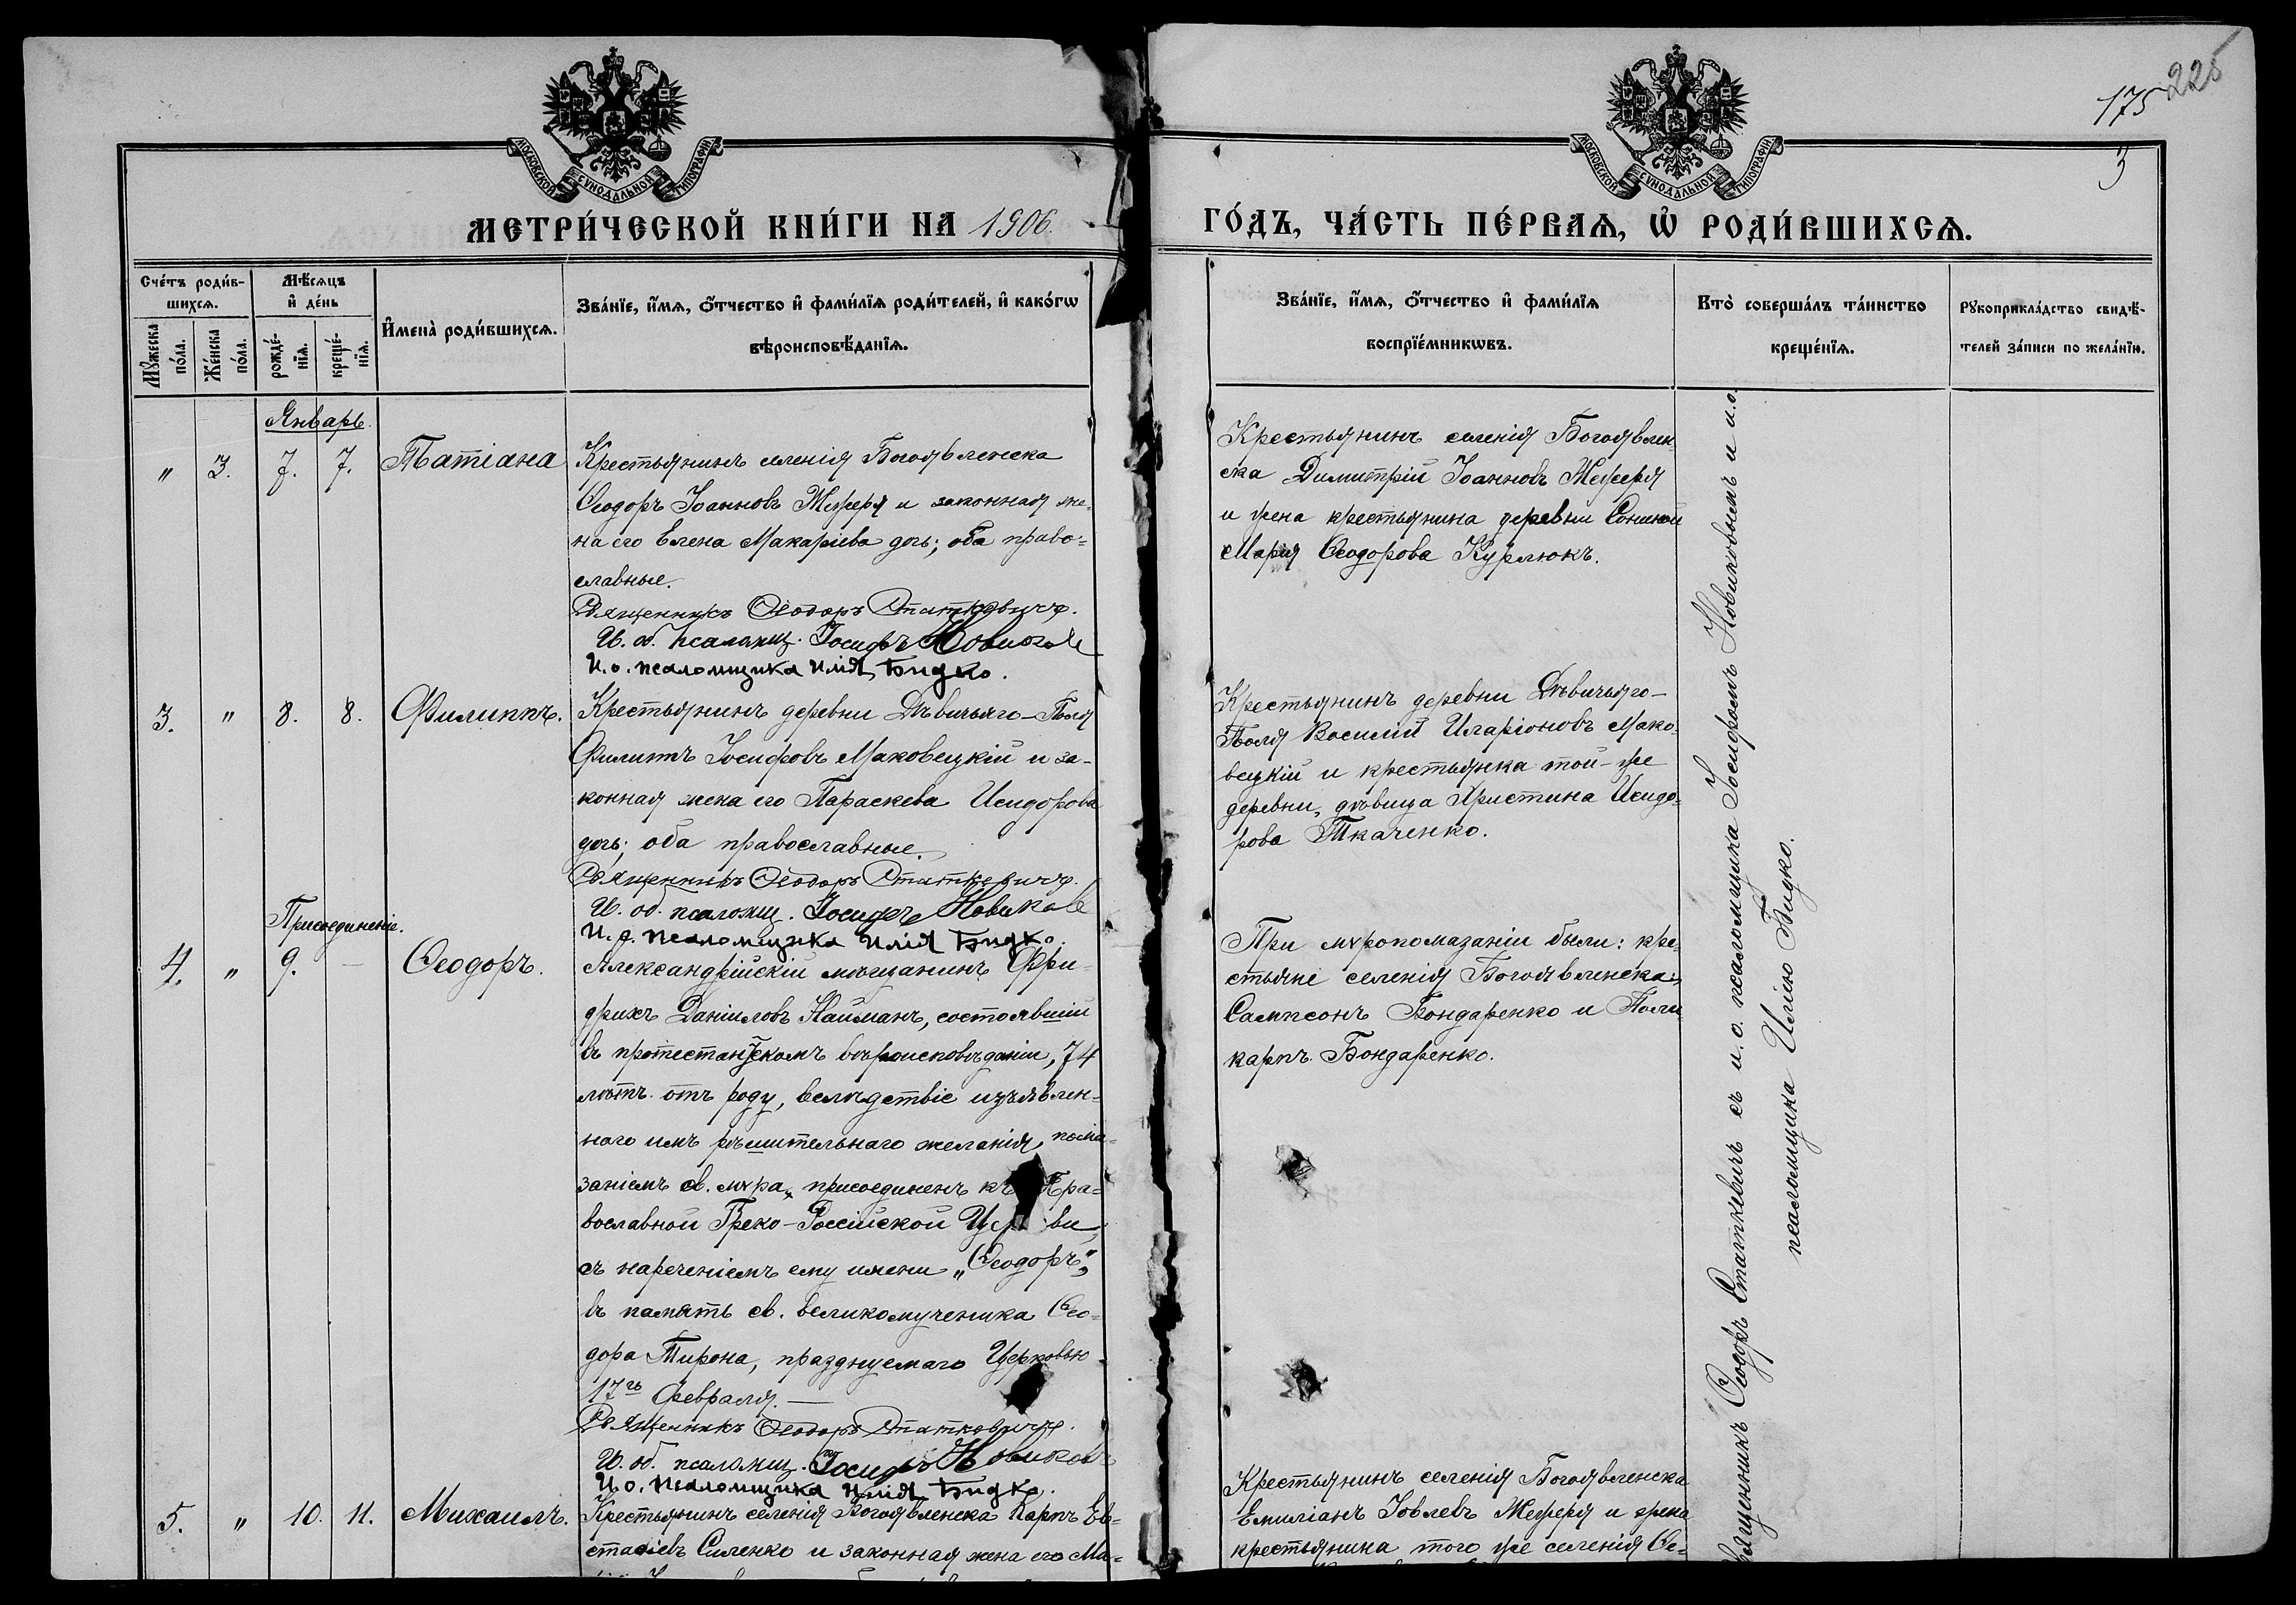 225
175
3
МОСКОВСКОЙ СѴНОДАЛЬНОЙ ТИПОГРАФІИ
МОСКОВСКОЙ СѴНОДАЛЬНОЙ ТИПОГРАФІИ
МЕТРИ́ЧЕСКОЙ КНИ́ГИ НА 1906.
ГО́ДЪ, ЧА́СТЬ ПЕ́РВАЯ, Ѡ҆ РОДИ́ВШИХСЯ.
Сче́тъ роди́в-
шихся.
Мꙋ́жеска по́ла.
Же́нска по́ла.
Мѣ́сяцъ
и҆ де́нь
рожде́-
нїя.
креще́-
нїя.
И҆мена̀ роди́вшихся.
Зва́нїе, и҆́мя, ѻ҆́тчество и҆ фами́лїя роди́телей, и҆ како́гѡ
вѣроисповѣ́данїя.
Зва́нїе, и҆́мя, ѻ҆́тчество и҆ фами́лїя
воспрїе́мникѡвъ.
Кто̀ соверша́лъ та́инство
креще́нїя.
Рꙋкоприкла́дство свидѣ́-
телей за́писи по жела́нїю.
Январь.
" 3. 7. 7. Татіана
Крестьянинъ селенія Богоявленска
Ѳеодоръ Іоанновъ Жежеря и законная же-
на его Елена Макаріева дочь; оба право-
славные.
Священникъ Ѳеодоръ Статкевичъ.
И. об. псаломщ. Іосифъ Новиковъ
И. о. псаломщика Илія Бидко.
Крестьянинъ селенія Богоявлен-
ска Димитрій Іоанновъ Жежеря
и жена крестьянина деревни
Марія Ѳеодорова Курлюкъ.
3. " 8. 8. Филиппъ.
Крестьянинъ деревни Дѣвичьяго-Поля
Филиппъ Іосифовъ Маковецкій и за-
конная жена его Параскева Исидорова
дочь; оба православные.
Священникъ Ѳеодоръ Статкевичъ.
И. об. псаломщ. Іосифъ Новиковъ
И. д. псаломщика Илія Бидко.
Крестьянинъ деревни Дѣвичьяго-
Поля Василій Иларіоновъ Мако-
вецкій и крестьянка той-же
деревни, дѣвица Христина Исидо-
рова Ткаченко.
Присоединеніе.
4. " 9. — Ѳеодоръ.
Александрійскій мѣщанинъ Фри-
дрихъ Даніиловъ Найманъ, состоявшій
въ протестантскомъ вѣроисповѣданіи, 74
лѣтъ отъ роду, вслѣдствіе изъявлен-
наго имъ рѣшительнаго желанія, пома-
заніемъ св. мѵра, присоединенъ къ Пра-
вославной Греко-Россійской Церкви,
съ нареченіемъ ему имени „Ѳеодоръ",
въ память св. великомученика Ѳео-
дора Тирона, празднуемаго Церковью
17го Февраля. —
Священникъ Ѳеодоръ Статкевичъ.
И. об. псаломщ. Іосифъ Новиковъ
И. о. псаломщика Илія Бидко.
При мѵропомазаніи были: кре-
стьяне селенія Богоявленска:
Сампсонъ Бондаренко и Поли-
карпъ Бондаренко.
5. " 10. 11. Михаилъ.
Крестьянинъ селенія Богоявленска Карпъ Ев-
стаѳіевъ Силенко и законная жена его Ма-
Крестьянинъ селенія Богоявленска
Емиліанъ Іовлевъ Жежеря и жена
крестьянина того же селенія Ѳе-
Священникъ Ѳеодоръ Статкевичъ съ и. о. псаломщика Іосифомъ Новиковымъ и и. о.
псаломщика Иліею Бидко.